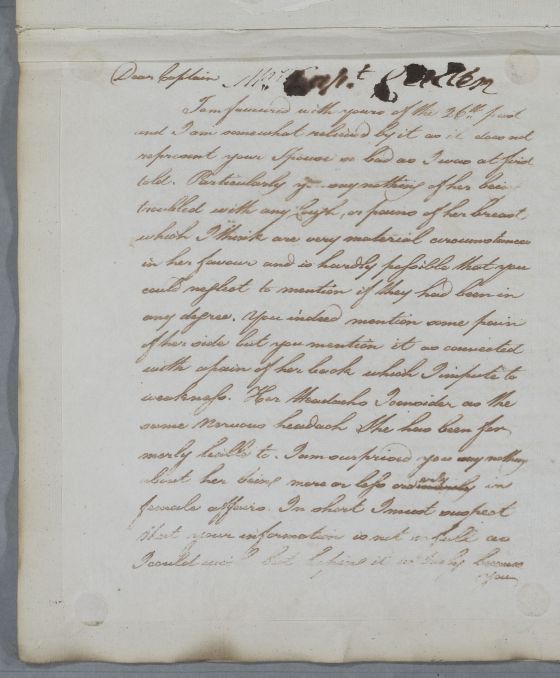 Dear Captain
I am favoured with yours of the 26th past
and I am somewhat relieved by it as it does not
represent your Spouse so bad as I was at first
told. Particularly you say nothing of her being
troubled with any Cough, or pains of her breast
which I think are very material circumstances
in her favour and is hardly possible that you
could neglect to mention if they had been in
any degree. You indeed mention some pain
of her side but you mention it as connected
with a pain of her back which I impute to
weakness. Her Headachs I consider as the
same Nervous headach She has been for
merly liable to. I am surprised you say nothing
about her being more or less in
female affairs. In short I must suspect
that your information is not so full as
I could wish but because
you